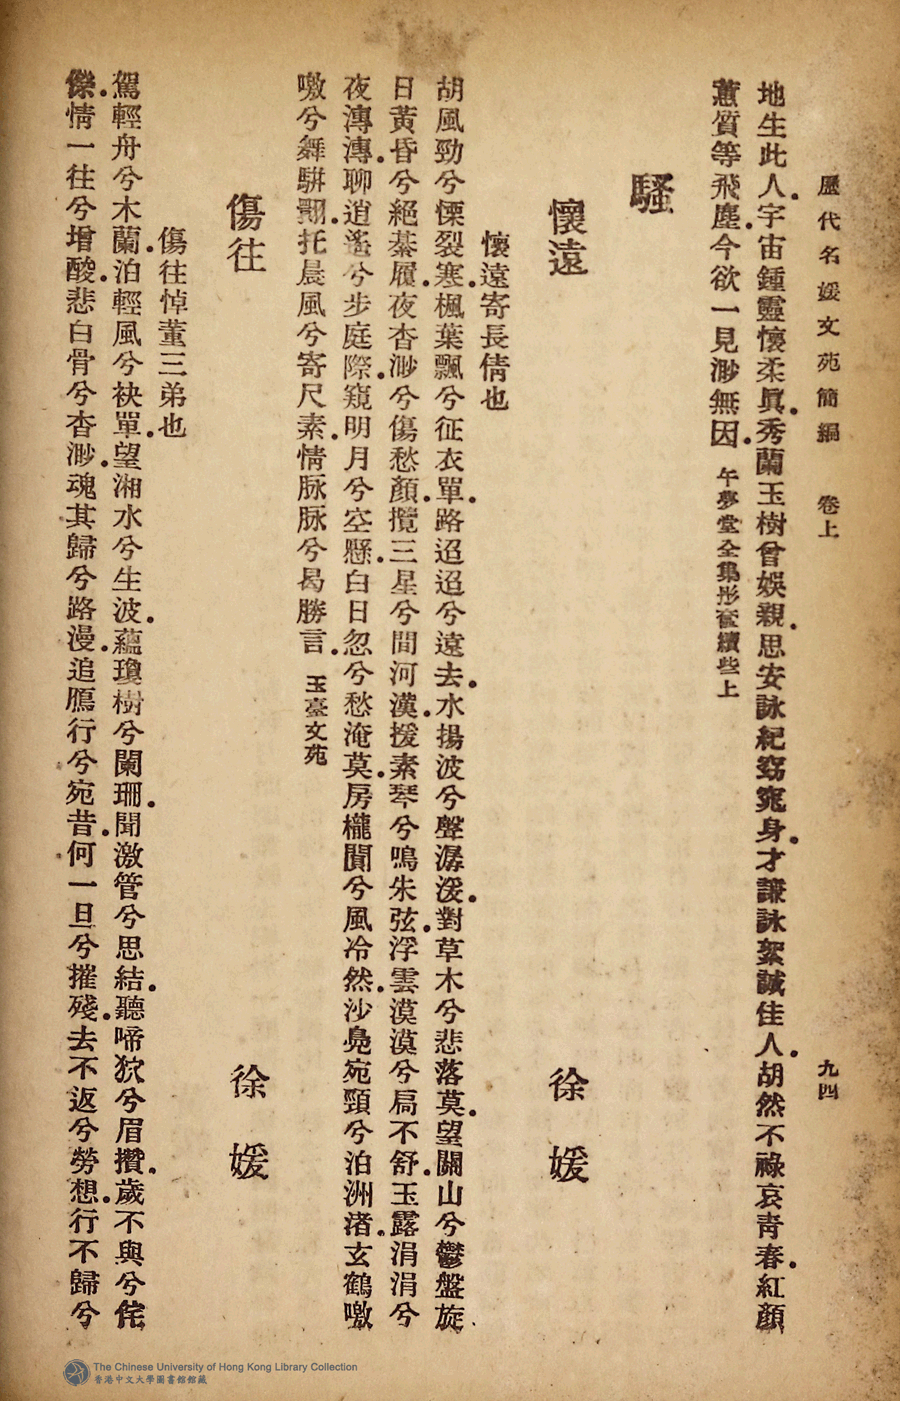 歷代名媛文苑簡編　卷上　九四
地生此人．宇宙鍾靈懷柔眞．秀蘭玉樹曾娛親．思安詠紀窈窕身．才謙詠絮誠佳人．胡然不祿哀靑春．紅顏
蕙質等飛塵．今欲一見渺無因．午夢堂全集彤奩續些上
騷
懷遠　徐媛
懷遠寄長倩也
胡風勁兮慄裂寒．楓葉飄兮征衣單．路迢迢兮遠去．水揚波兮聲潺湲．對草木兮悲落莫．望關山兮鬱盤旋
日黃昏兮絕綦履．夜杳渺兮傷愁顏．攬三星兮間河漢．援素琴兮鳴朱弦．浮雲漠漠兮扃不舒．玉露涓涓兮
夜漙漙．聊逍遙兮步庭際．窺明月兮空懸．白日忽兮愁淹莫．房櫳闃兮風冷然．沙鳧宛頸兮泊洲渚．玄鶴噭
噭兮舞騈翾．托晨風兮寄尺素．情脉脉兮曷勝言．玉臺文苑
傷往　徐媛
傷往悼董三弟也
駕輕舟兮木蘭．泊輕風兮袂單．望湘水兮生波．蘊瓊樹兮闌珊．聞激管兮思結．聽啼狖兮眉攢．歲不與兮侘
傺．情一往兮增酸．悲白骨兮杳渺．魂其歸兮路漫．追鴈行兮宛昔．何一旦兮摧殘．去不返兮勞想．行不歸兮
The Chinese University of Hong Kong Library Collection
香港中文大學圖書館館藏